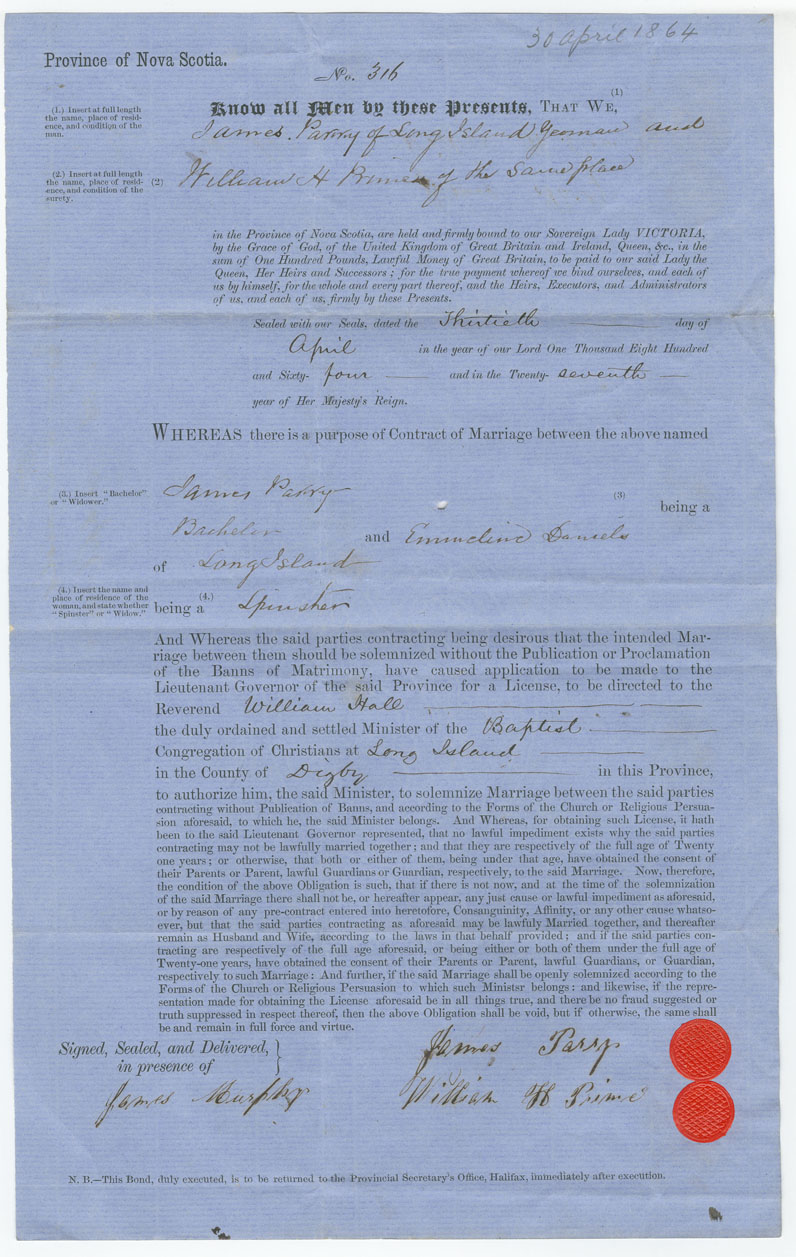 30 April 1864
Province of Nova Scotia.
No. 316
(1.) Insert at full length
the name, place of resid-
ence, and condition of the
man.
(1)
Know all Men by these Presents, THAT WE,
James Parry of Long Island Yeoman and
(2.) Insert at full length
the name, place of resid-
ence, and condition of the
surety.
(2) William H Prime of the Same place
in the Province of Nova Scotia, are held and firmly bound to our Sovereign Lady VICTORIA,
by the Grace of God, of the United Kingdom of Great Britain and Ireland, Queen, &c., in the
sum of One Hundred Pounds, Lawful Money of Great Britain, to be paid to our said Lady the
Queen, Her Heirs and Successors; for the true payment whereof we bind ourselves, and each of
us by himself, for the whole and every part thereof, and the Heirs, Executors, and Administrators
of us, and each of us, firmly by these Presents.
Sealed with our Seals, dated the Thirtieth day of
April in the year of our Lord One Thousand Eight Hundred
and Sixty- four and in the Twenty- seventh
year of Her Majesty's Reign.
WHEREAS there is a purpose of Contract of Marriage between the above named
(3.) Insert "Bachelor"
or "Widower."
James Parry (3) being a
Bachelor and Emmeline Daniels
of Long Island
(4.) Insert the name and
place of residence of the
woman, and state whether
"Spinster" or "Widow."
being a (4.) Spinster
And Whereas the said parties contracting being desirous that the intended Mar-
riage between them should be solemnized without the Publication or Proclamation
of the Banns of Matrimony, have caused application to be made to the
Lieutenant Governor of the said Province for a License, to be directed to the
Reverend William Hall
the duly ordained and settled Minister of the Baptist
Congregation of Christians at Long Island
in the County of Digby in this Province,
to authorize him, the said Minister, to solemnize Marriage between the said parties
contracting without Publication of Banns, and according to the Forms of the Church or Religious Persua-
sion aforesaid, to which he, the said Minister belongs. And Whereas, for obtaining such License, it hath
been to the said Lieutenant Governor represented, that no lawful impediment exists why the said parties
contracting may not be lawfully married together; and that they are respectively of the full age of Twenty
one years; or otherwise, that both or either of them, being under that age, have obtained the consent of
their Parents or Parent, lawful Guardians or Guardian, respectively, to the said Marriage. Now, therefore,
the condition of the above Obligation is such, that if there is not now, and at the time of the solemnization
of the said Marriage there shall not be, or hereafter appear, any just cause or lawful impediment as aforesaid,
or by reason of any pre-contract entered into heretofore, Consanguinity, Affinity, or any other cause whatso-
ever, but that the said parties contracting as aforesaid may be lawfuly Married together, and thereafter
remain as Husband and Wife, according to the laws in that behalf provided; and if the said parties con-
tracting are respectively of the full age aforesaid, or being either or both of them under the full age of
Twenty-one years, have obtained the consent of their Parents or Parent, lawful Guardians, or Guardian,
respectively to such Marriage: And further, if the said Marriage shall be openly solemnized according to the
Forms of the Church or Religious Persuasion to which such Ministsr belongs: and likewise, if the repre-
sentation made for obtaining the License aforesaid be in all things true, and there be no fraud suggested or
truth suppressed in respect thereof, then the above Obligation shall be void, but if otherwise, the same shall
be and remain in full force and virtue.
Signed, Sealed, and Delivered,
in presence of
James Parry
James Murphy
William H Prime
N. B.—This Bond, duly executed, is to be returned to the Provincial Secretary's Office, Halifax, immediately after execution.